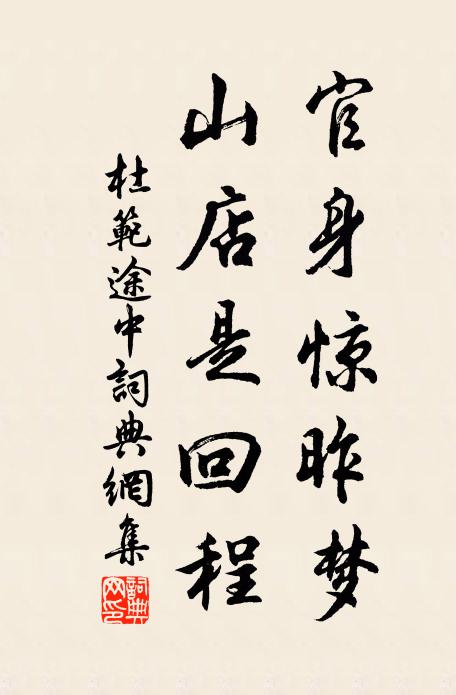 官身惊昨梦
山店是回程
杜範途中詞典網集
詞典网印